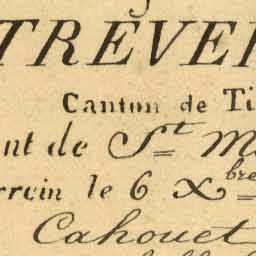 TRÉVE
Canton de Ti
nt de St M
rrein le 6 Xbre
Cahouet